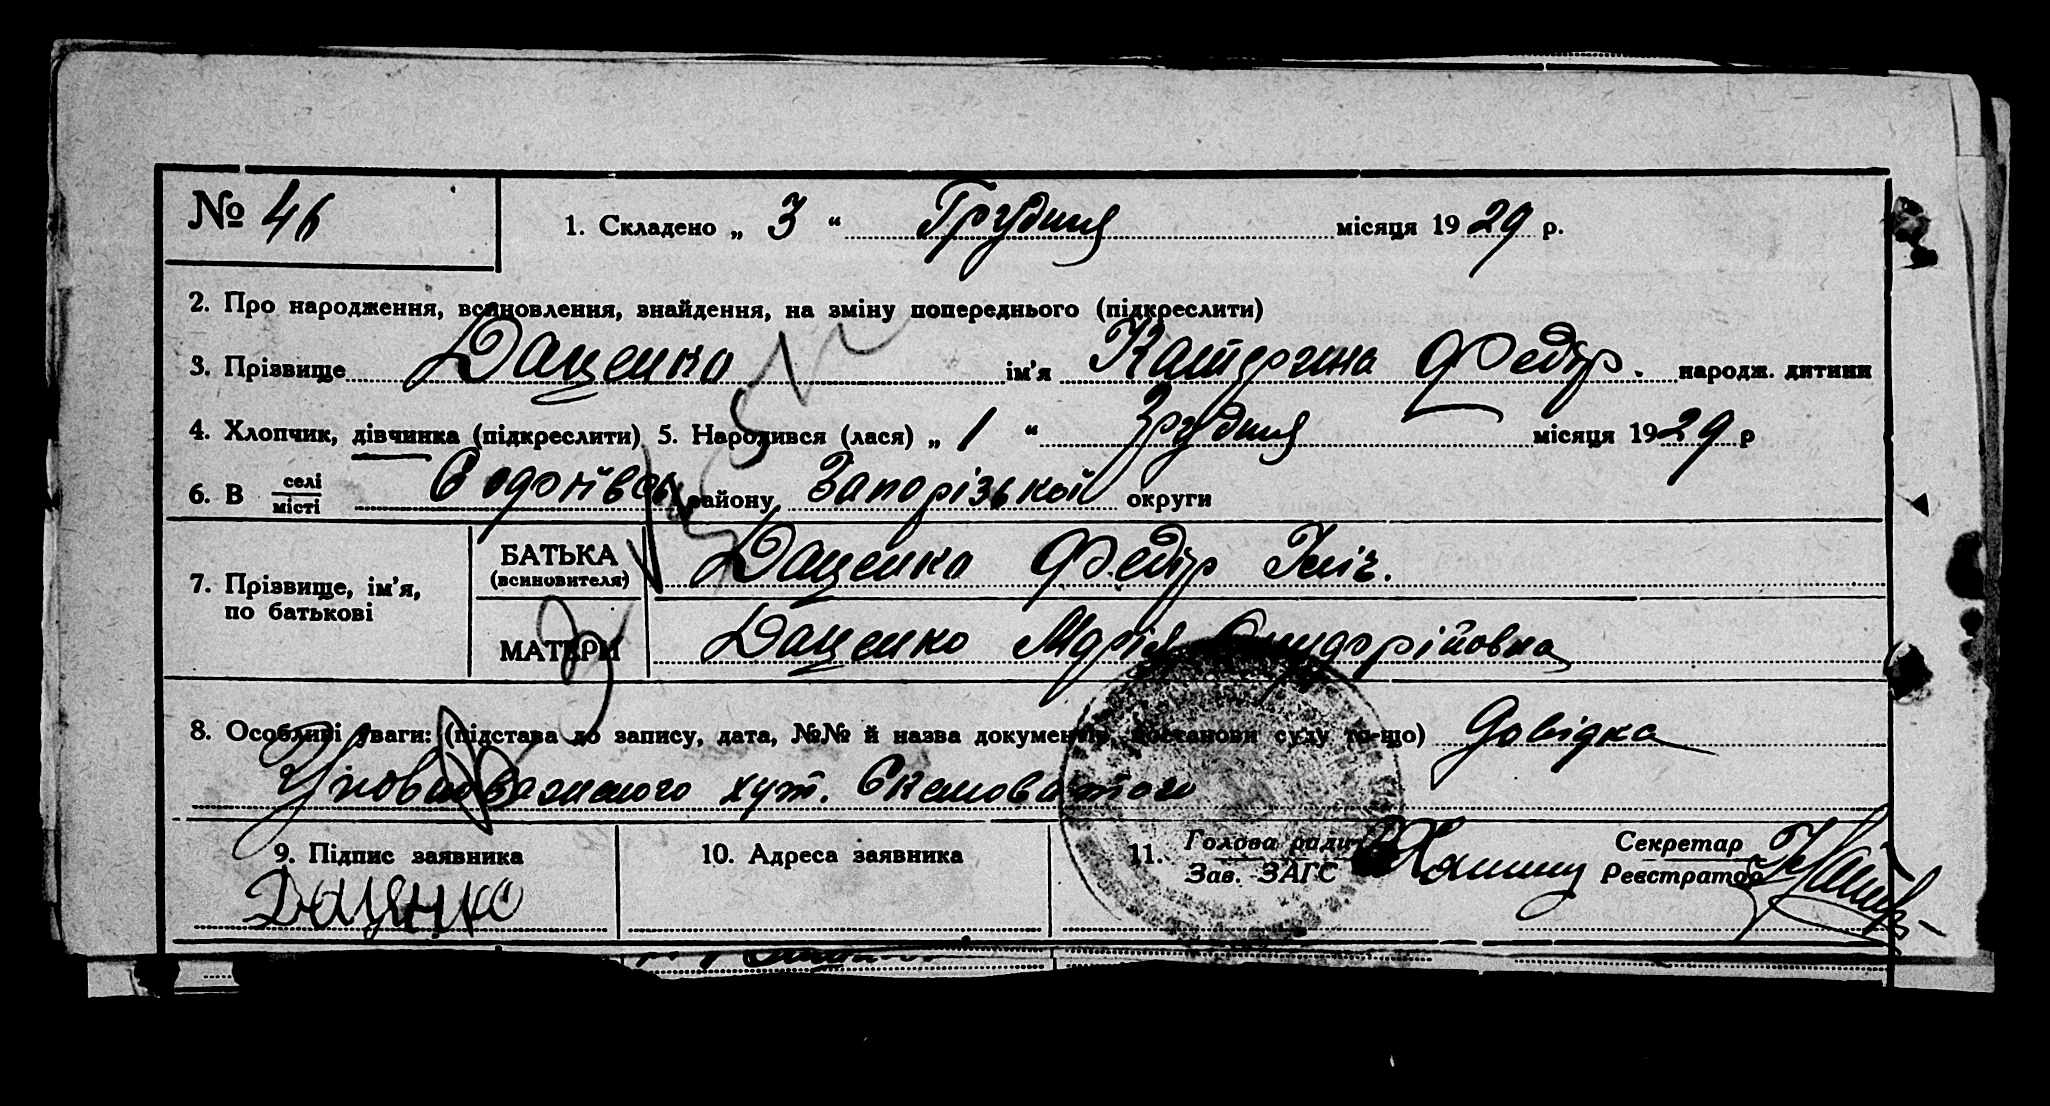 № 46
1. Складено „ 3 “ Грудня місяця 1929 р.
2. Про народження, всиновлення, знайдення, на зміну попереднього (підкреслити)
3. Прізвище Даценко ім’я Катерина Федір. народж. дитини
4. Хлопчик, дівчинка (підкреслити) 5. Народився (лася) „ 1 “ Грудня місяця 1929 р
6. В селі місті району Запорізької округи
7. Прізвище, ім’я, по батькові
БАТЬКА (всиновителя) Даценко Федір Ілліч.
МАТЕРИ Даценко Марія
8. Особливі уваги: (підстава до запису, дата, №№ й назва документів, постанови суду то-що) Довідка
Уповноваженого хут.
9. Підпис заявника
Даценко
10. Адреса заявника
11. Голова ради
Зав. ЗАГС
Секретар
Реєстратор